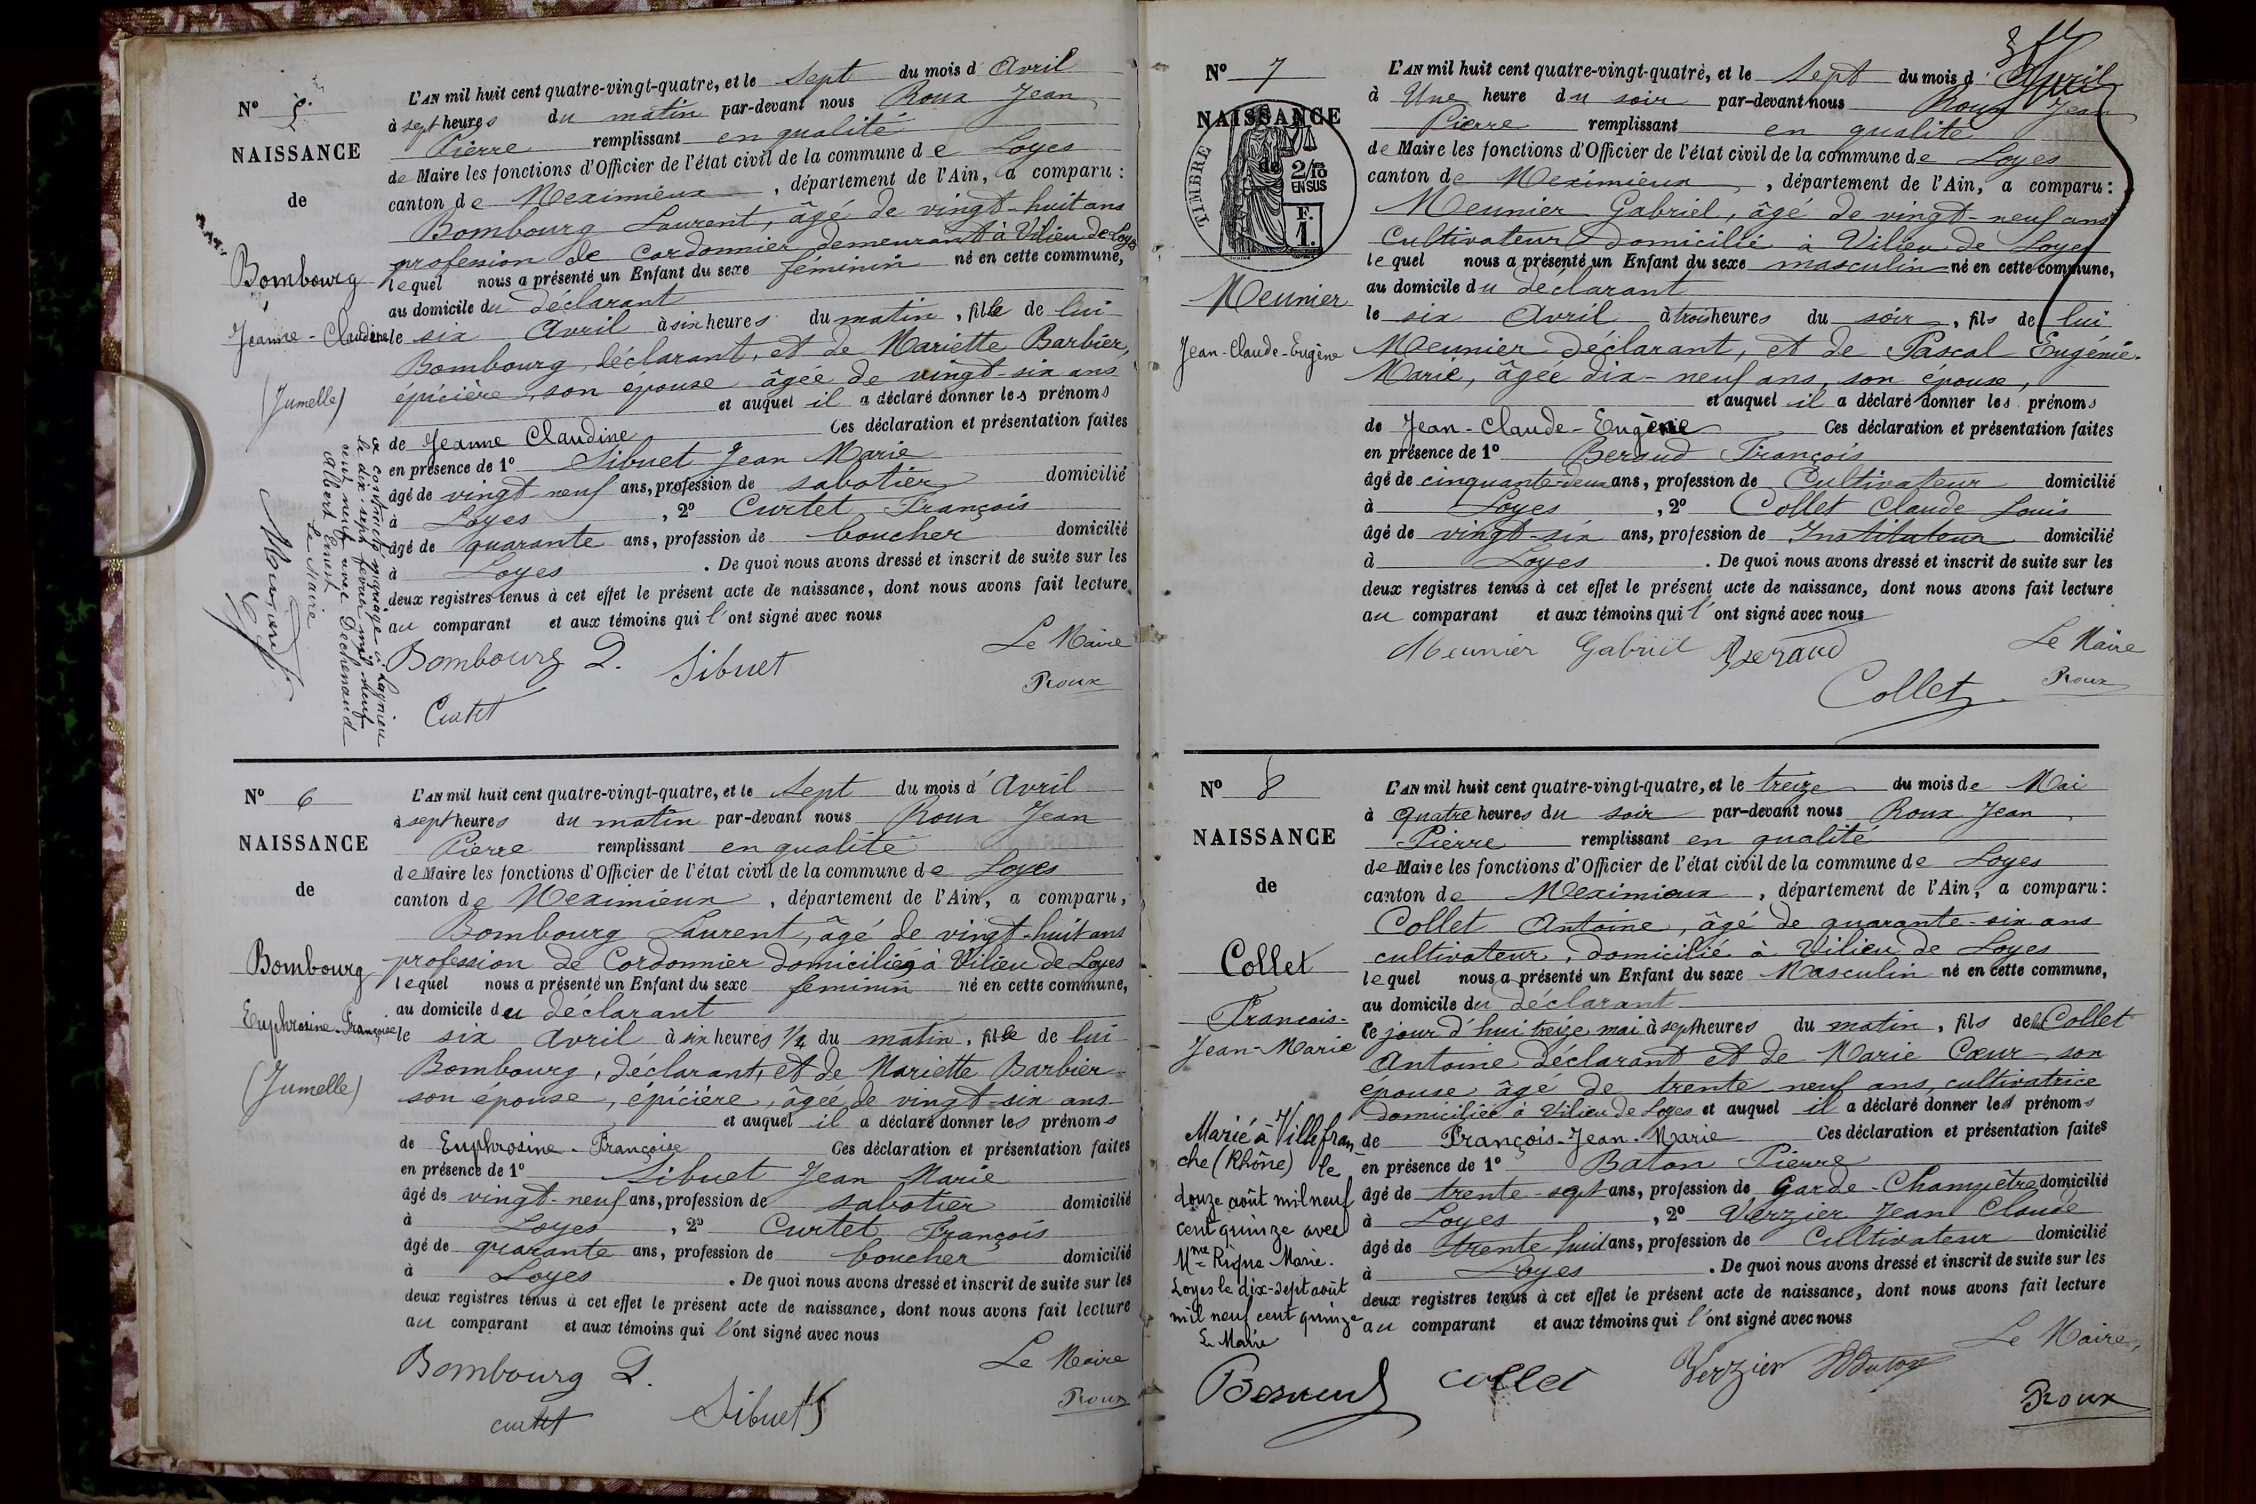 N° 5
NAISSANCE
de
Bombourg
Jeanne-Claudine
(Jumelle)
a contracté mariage à Lagnieu
le dix sept février mil neuf
cent neuf avec Dechenaud
Albert Ernest
Le Maire
L'AN mil huit cent quatre-vingt-quatre, et le sept du mois d'Avril
à sept heures du matin par-devant nous Roux Jean
Pierre remplissant en qualité
de Maire les fonctions d'Officier de l'état civil de la commune de Loyes
canton de Meximieux, département de l'Ain, a comparu :
Bombourg Laurent, âgé de vingt-huit ans
profession de Cordonnier demeurant à Vilieu de Loyes
lequel nous a présenté un Enfant du sexe féminin né en cette commune,
au domicile du déclarant
le six Avril à six heures du matin, fille de lui
Bombourg, déclarant, et de Mariette Barbier,
épicière, son épouse âgée de vingt-six ans
et auquel il a déclaré donner les prénoms
de Jeanne Claudine Ces déclaration et présentation faites
en présence de 1° Sibuet Jean Marie
âgé de vingt-neuf ans, profession de sabotier domicilié
à Loyes, 2° Curtet François
âgé de quarante ans, profession de boucher domicilié
à Loyes. De quoi nous avons dressé et inscrit de suite sur les
deux registres tenus à cet effet le présent acte de naissance, dont nous avons fait lecture
au comparant et aux témoins qui l'ont signé avec nous
Bombourg L. Sibuet Le Maire
Curtet Roux
N° 6
NAISSANCE
de
Bombourg
Euphrosine-Françoise
(Jumelle)
L'AN mil huit cent quatre-vingt-quatre, et le sept du mois d'Avril
à sept heures du matin par-devant nous Roux Jean
Pierre remplissant en qualité
de Maire les fonctions d'Officier de l'état civil de la commune de Loyes
canton de Meximieux, département de l'Ain, a comparu,
Bombourg Laurent, âgé de vingt-huit ans
profession de Cordonnier domicilié à Vilieu de Loyes
lequel nous a présenté un Enfant du sexe féminin né en cette commune,
au domicile du déclarant
le six Avril à six heures 1/4 du matin, fille de lui
Bombourg, déclarant, et de Mariette Barbier
son épouse, épicière, âgée de vingt-six ans
et auquel il a déclaré donner les prénoms
de Euphrosine-Françoise Ces déclaration et présentation faites
en présence de 1° Sibuet Jean Marie
âgé de vingt-neuf ans, profession de sabotier domicilié
à Loyes, 2° Curtet François
âgé de quarante ans, profession de boucher domicilié
à Loyes. De quoi nous avons dressé et inscrit de suite sur les
deux registres tenus à cet effet le présent acte de naissance, dont nous avons fait lecture
au comparant et aux témoins qui l'ont signé avec nous
Bombourg L. Le Maire
Curtet Sibuet Roux
N° 7
NAISSANCE
de
TIMBRE
2/10
EN SUS
F.
1.
Meunier
Jean-Claude-Eugène
L'AN mil huit cent quatre-vingt-quatre, et le Sept du mois d'Avril
à Une heure du soir par-devant nous Roux Jean
Pierre remplissant en qualité
de Maire les fonctions d'Officier de l'état civil de la commune de Loyes
canton de Meximieux, département de l'Ain, a comparu :
Meunier Gabriel, âgé de vingt-neuf ans
Cultivateur domicilié à Vilieu de Loyes
lequel nous a présenté un Enfant du sexe masculin né en cette commune,
au domicile du déclarant
le six Avril à trois heures du soir, fils de lui
Meunier déclarant, et de Pascal Eugénie
Marie, âgée dix-neuf ans, son épouse,
et auquel il a déclaré donner les prénoms
de Jean-Claude-Eugène Ces déclaration et présentation faites
en présence de 1° Beraud François
âgé de cinquante-deux ans, profession de Cultivateur domicilié
à Loyes, 2° Collet Claude Louis
âgé de vingt-six ans, profession de Instituteur domicilié
à Loyes. De quoi nous avons dressé et inscrit de suite sur les
deux registres tenus à cet effet le présent acte de naissance, dont nous avons fait lecture
au comparant et aux témoins qui l'ont signé avec nous
Meunier Gabriel Beraud Le Maire
Collet Roux
N° 8
NAISSANCE
de
Collet
Francois-
Jean-Marie
Marié à Villefran-
che (Rhône) le
douze août mil neuf
cent quinze avec
Loyes le dix-sept août
mil neuf cent quinze
Le Maire
L'AN mil huit cent quatre-vingt-quatre, et le treize du mois de Mai
à quatre heures du soir par-devant nous Roux Jean
Pierre remplissant en qualité
de Maire les fonctions d'Officier de l'état civil de la commune de Loyes
canton de Meximieux, département de l'Ain, a comparu :
Collet Antoine, âgé de quarante-six ans
cultivateur, domicilié à Vilieu de Loyes
lequel nous a présenté un Enfant du sexe Masculin né en cette commune,
au domicile du déclarant
le jour d'hui treize mai à sept heures du matin, fils de lui Collet
Antoine déclarant et de Marie Cœur, son
épouse âgé de trente neuf ans, cultivatrice
domiciliée à Vilieu de Loyes et auquel il a déclaré donner les prénoms
de François-Jean-Marie Ces déclaration et présentation faites
en présence de 1° Baton Pierre
âgé de trente-sept ans, profession de Garde-Champêtre domicilié
à Loyes, 2° Verzier Jean Claude
âgé de trente huit ans, profession de Cultivateur domicilié
à Loyes. De quoi nous avons dressé et inscrit de suite sur les
deux registres tenus à cet effet le présent acte de naissance, dont nous avons fait lecture
au comparant et aux témoins qui l'ont signé avec nous
Collet Verzier Baton Le Maire,
Roux